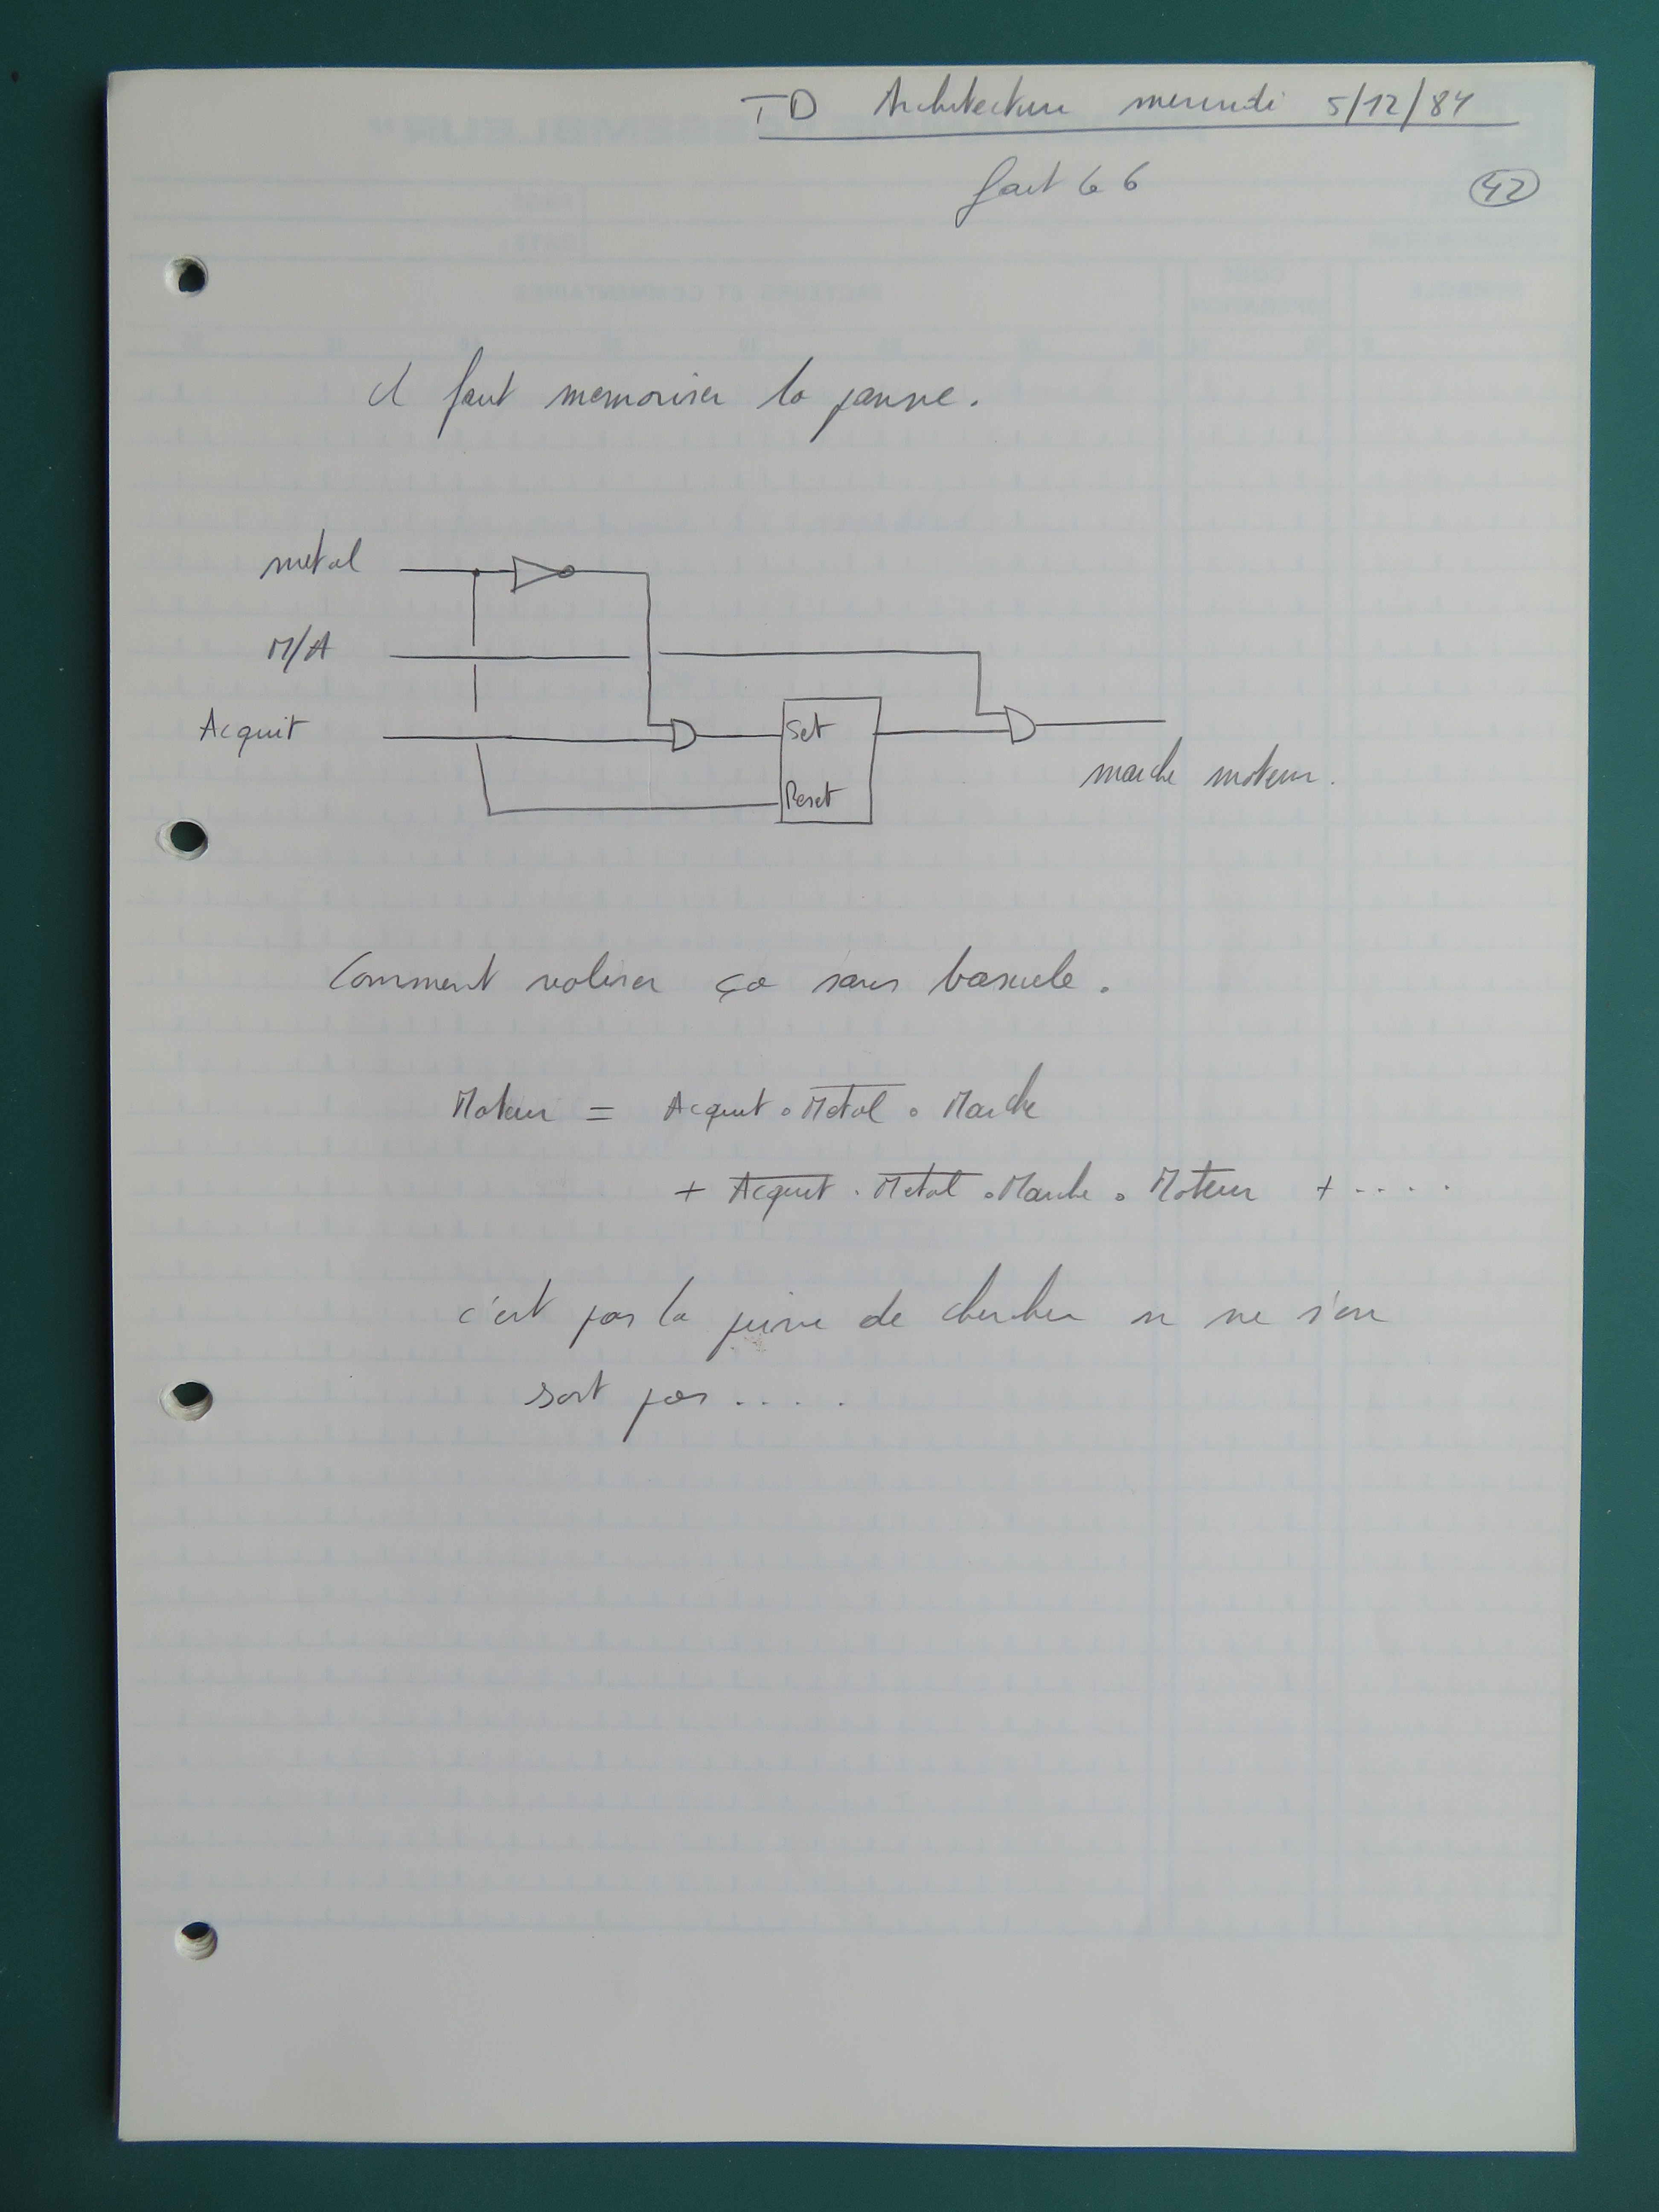 TD Architecture mercredi 5/12/84
fait le 6
42
il faut memoriser la panne.
metal
M/A
Acquit
Set
Reset
marche moteur.
Comment realiser ça sans bascule.
Moteur = Acquit . M̅e̅t̅a̅l̅ . Marche
+ A̅c̅q̅u̅i̅t̅ . M̅e̅t̅a̅l̅ . Marche . Moteur + .....
c'est pas la peine de chercher on ne s'en
sort pas ....